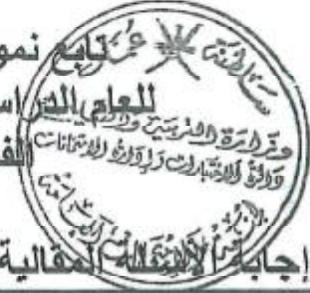 تابع نمو
للعام الدراس
الف
إجابة الأسئلة المقالية
سلطنة عمان
وزارة التربية و
دائرة الاختبارات وإدارة الامتحانات